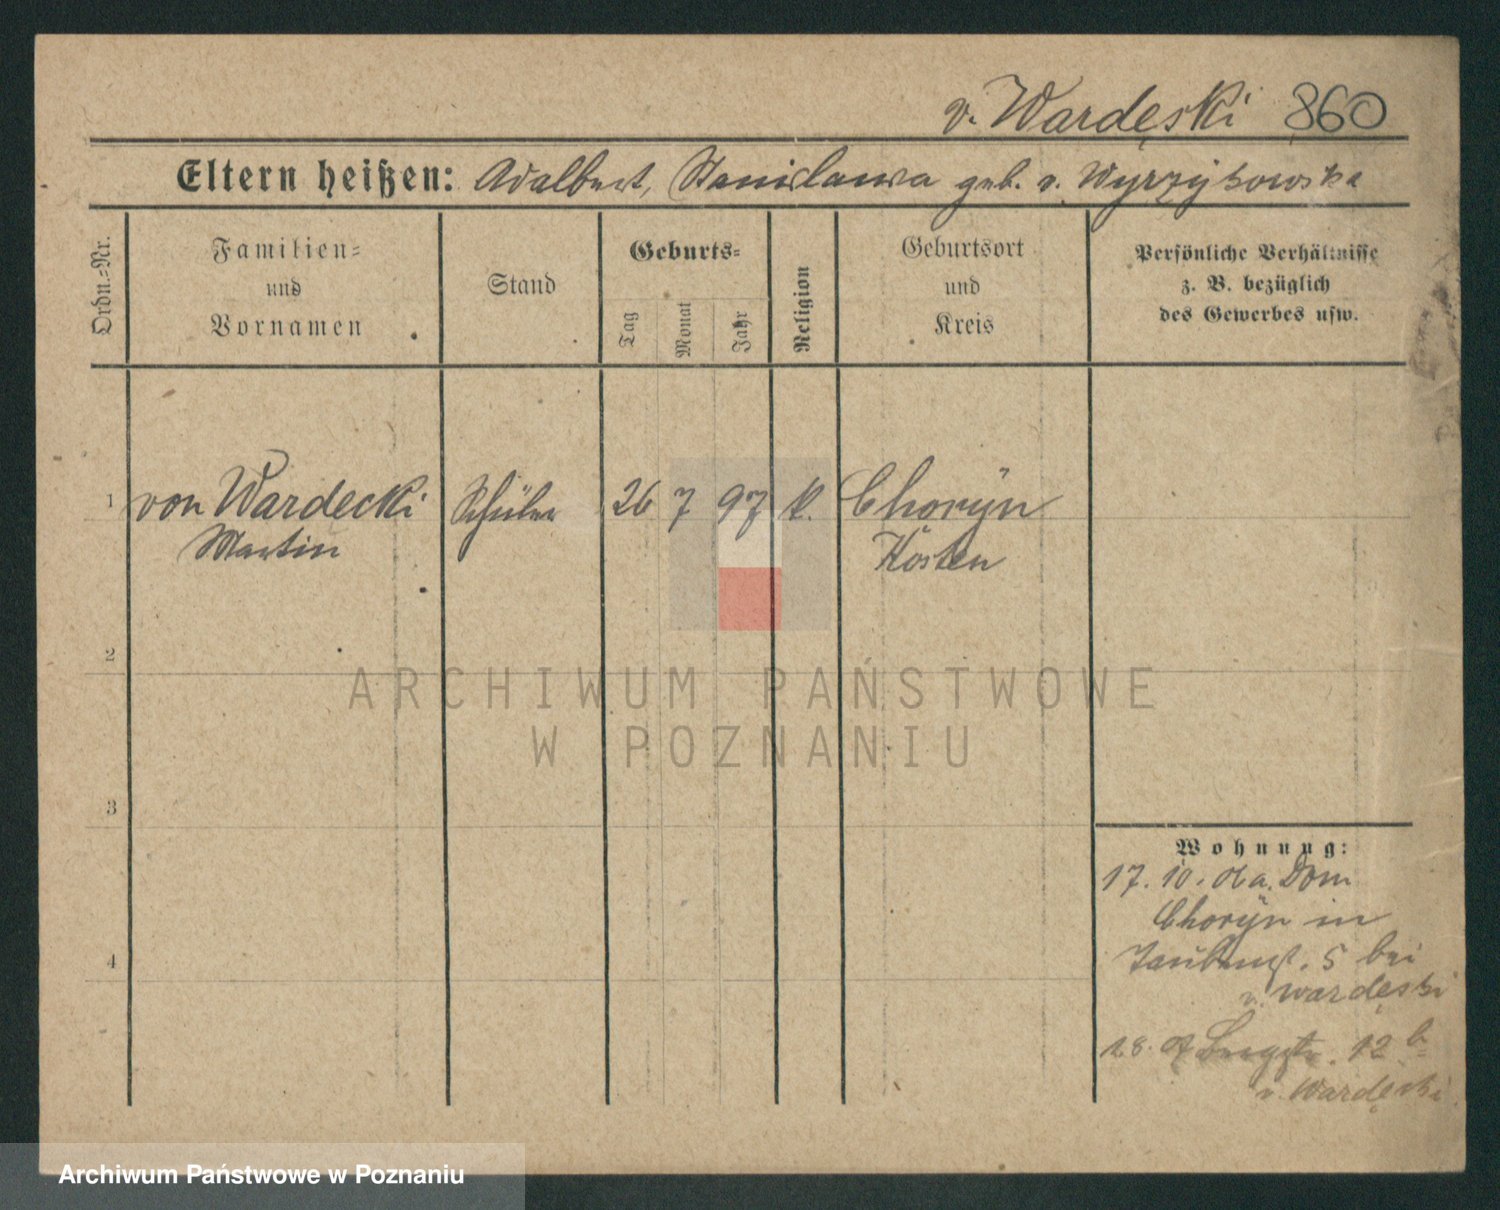 v. Wardęski 860
Eltern heißen: Adalbert, Stanislawa geb. v. Wyrzykowska
Ordn.=Nr.
Familien=
und
Vornamen
Stand
Geburts=
Tag
Monat
Jahr
Religion
Geburtsort
und
Kreis
Persönliche Verhältnisse
z. B. bezüglich
des Gewerbes usw.
1 von Wardecki Schüler 26 7 97 k. Choryn
Martin Kosten
2
3
4
Wohnung:
17. 10. Dom
Choryn in
5 bei
v. Wardęski
12 b
v. Wardęski
ARCHIWUM PAŃSTWOWE
W POZNANIU
Archiwum Państwowe w Poznaniu